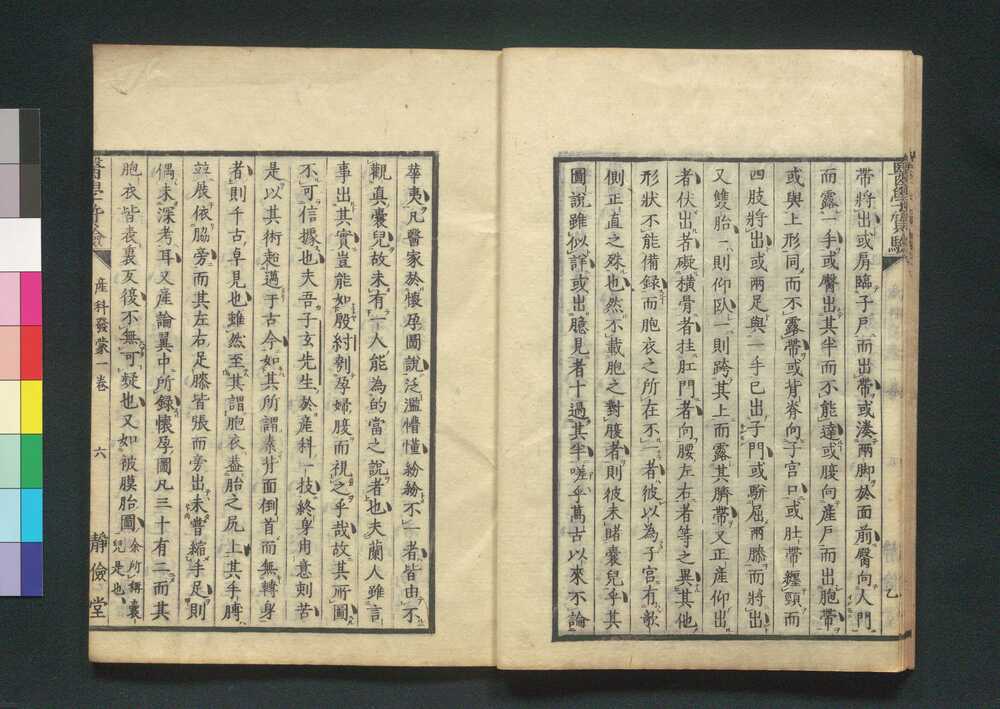 帶將出或肩臨子戶而出帶或湊兩脚於面前臀向人門
而露一手或臀出其半而不能達或腹向產戶而出胞帶
或與上形同而不露帶或背脊向子宮口或肚帶纏頸而
四肢將出或兩足與一手已出子門或斷屈兩膝而將出
又雙胎一則仰臥一則跨其上而露其臍帶又正產仰出
者伏出者礙橫骨者拄肛門者向腰左右者等之異其他
形狀不能備錄而胞衣之所在不一者彼以為子宮有欹
側正直之殊也然不載胞之對腹者則彼未睹囊兒乎其
圖說雖似詳或出臆見者十過其半嗟乎萬古以來不論
華夷凡醫家於懷孕圖說泛濫懵懂紛紛不一者皆由不
觀真囊兒故未有一人能為的當之說者也夫蘭人雖言
事出其實豈能如殷紂刳孕婦腹而視之乎哉故其所圖
不可信據也夫吾子玄先生於產科一技終身用意刻苦
是以其術超邁于古今如其所謂素背面倒首而無轉身
者則千古卓見也雖然至其謂胞衣蓋胎之尻上其手膊
竝展依脇旁而其左右足膝皆張而旁出未嘗縮手足則
偶未深考耳又產論翼中所錄懷孕圖凡三十有二而其
胞衣皆表裏反後不無可疑也又如被膜胎圖余所稱囊兒是也
產科發蒙一卷
六
靜儉堂